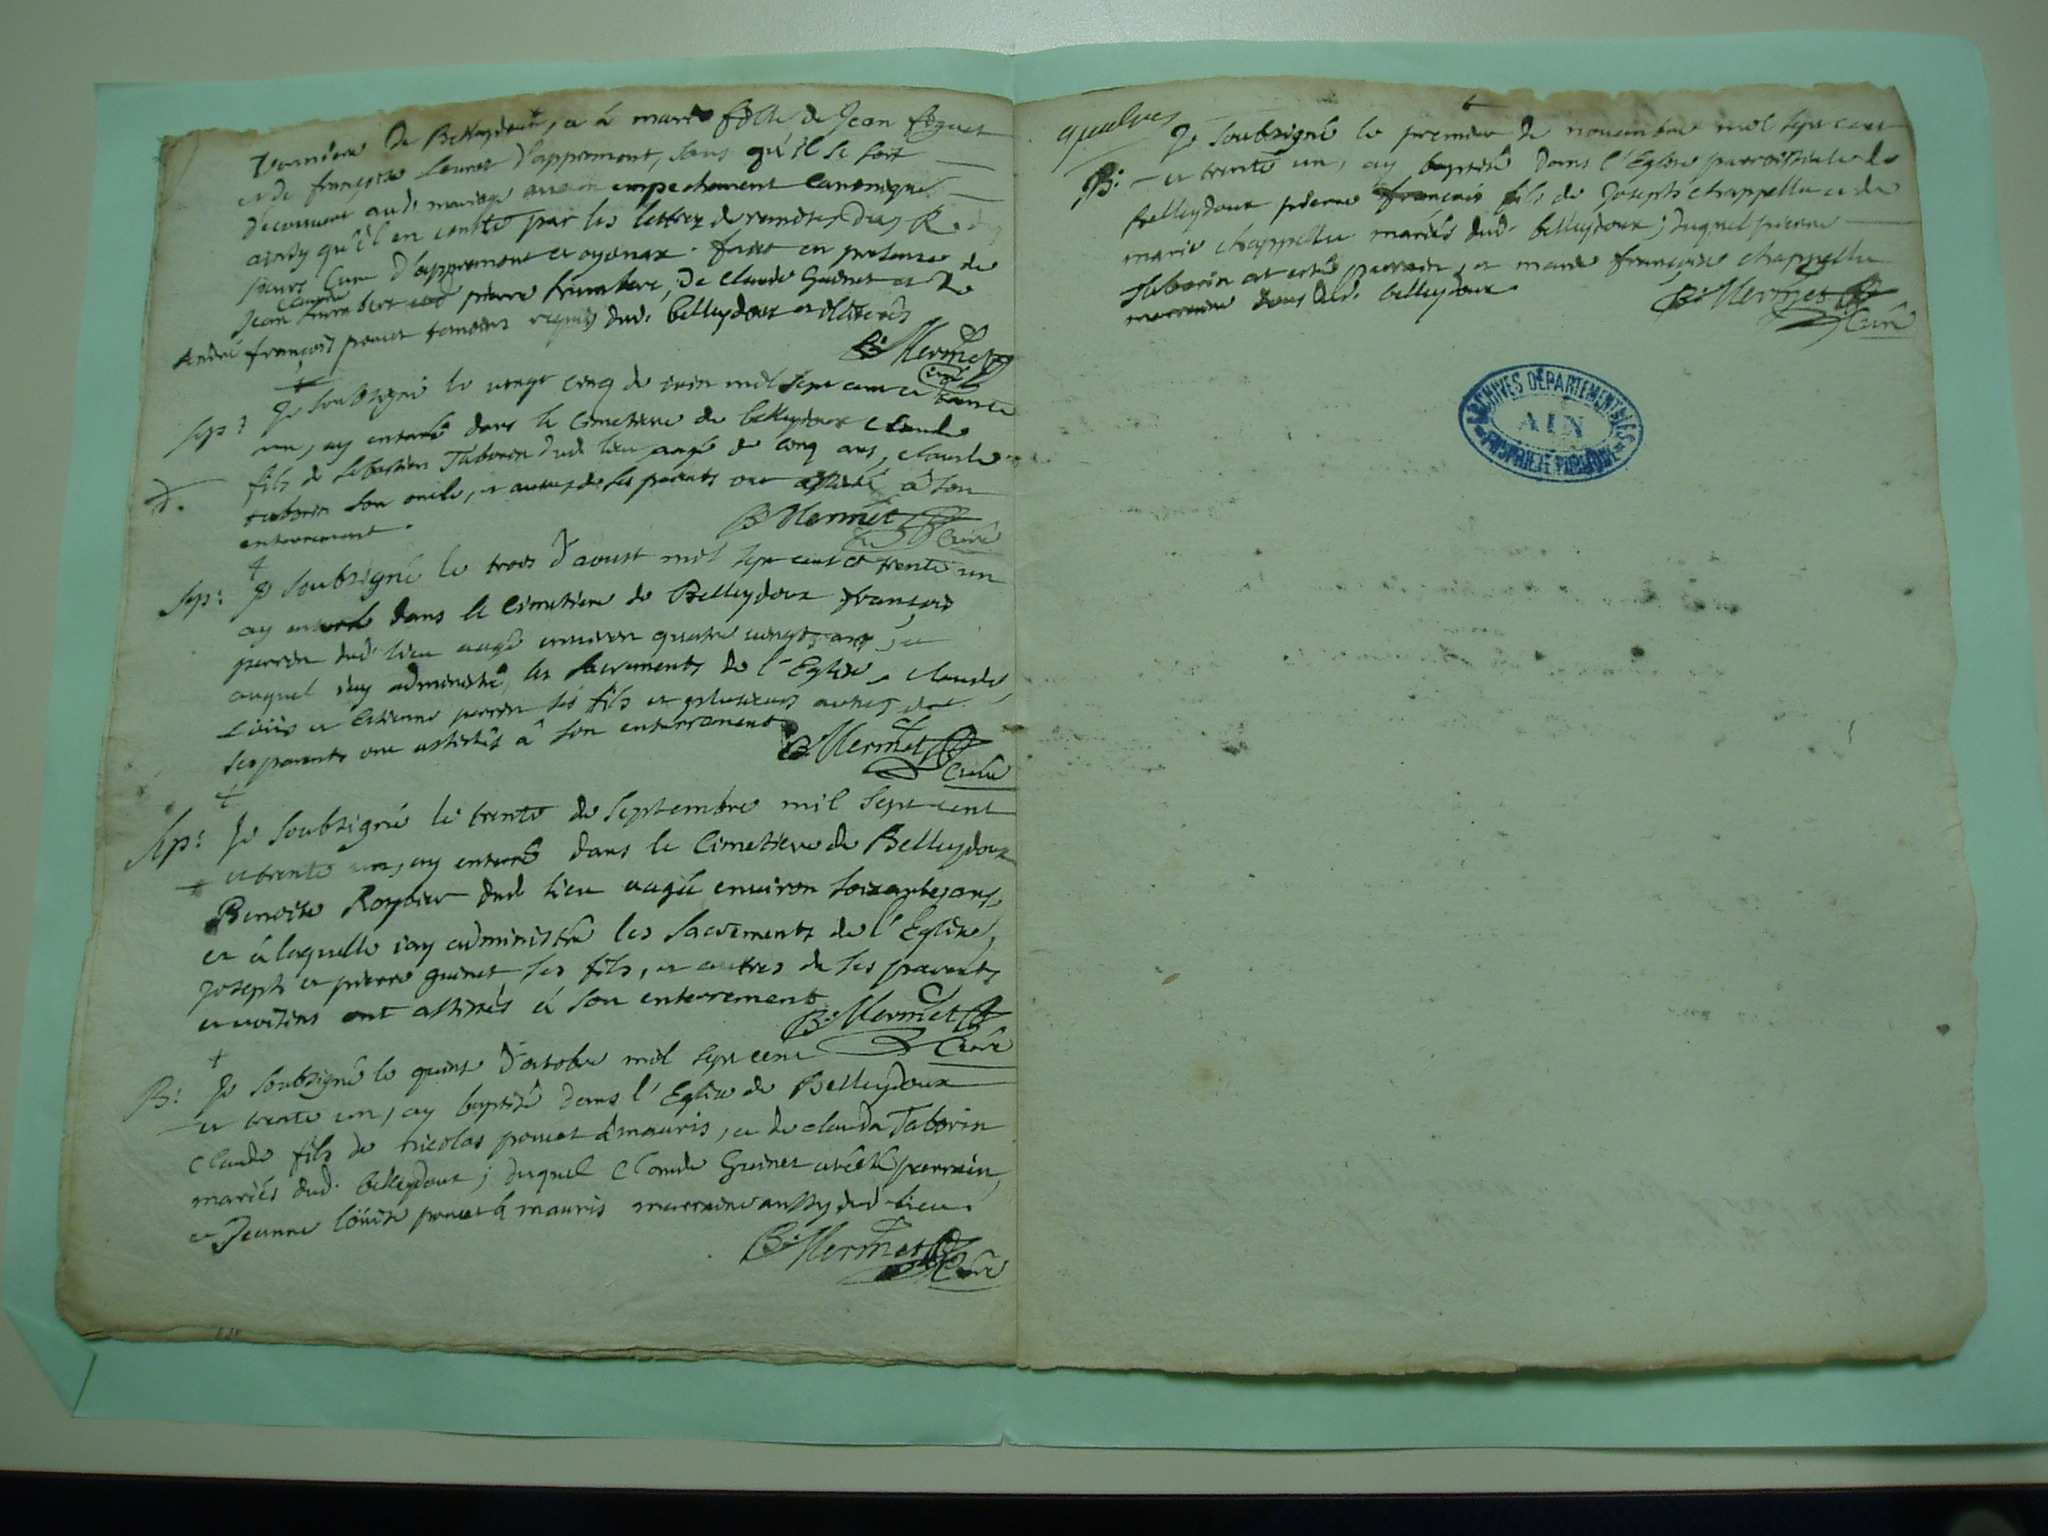 de Belleydoux, et à marie fille de Jean
et de françoise d'appremont, sans qu'il se soit
decouvert aud. mariage aucun empechement canonique
ainsy qu'il en conste par les lettres de remises des
sieurs Curé d'appremont et oyonax. fait en presence de
Jean claude humbert pierre humbert, de claude Guinet et de
André françois poncet temoins requis dud. belleydoux et illiterés
B. Mermet curé
Sep: Je soubsigné le vingt cinq de iuin mil sept cent et trente
un, ay enterré dans le Cimetiere de belleydoux claude
fils de sebastien Taborin dud. lieu aagé de cinq ans, claude
taborin son oncle, et autres de ses parents ont assisté à son
enterrement.
B. Mermet Curé
Sep: Je soubsigné le trois d'aoust mil sept cent et trente un
ay enterré dans le Cimetiere de Belleydoux françois
perrin dud. lieu aagé environ quatre vingts ans, et
auquel iay administré les sacrements de l'Eglise, claude,
Loüis et Estienne perrin ses fils et plusieurs autres de
ses parents ont assistés à son enterrement
B. Mermet Curé
Sep: Je soubsigné le trente de septembre mil sept cent
et trente un, ay enterré dans le Cimetiere de Belleydoux
Benoite dud. lieu aagée environ soixante ans,
et à laquelle iay administré les sacrements de l'Eglise,
Joseph et pierre guinet ses fils, et autres de ses parents
et voisins ont assistés à son enterrement
B. Mermet Curé
B: Je soubsigné le quinse d'octobre mil sept cent
et trente un, ay baptisé dans l'Eglise de Belleydoux
Claude fils de nicolas poncet à mauris, et de clauda Taborin
mariés dud. belleydoux; duquel Claude Guinet a été parrain,
et Jeanne Loüise poncet à mauris marraine aussy dud. lieu.
B. Mermet Curé
Je soubsigné le premier de novembre mil sept cent
B: et trente un, ay baptisé dans l'Eglise parroissiale de
Belleydoux pierre françois fils de Joseph chappellu et de
marie chappellu mariés dud. belleydoux; duquel pierre
Taborin at esté parrain, et marie françoise chappellu
marraine tous dud. belleydoux.
B. Mermet Curé
ARCHIVES DÉPARTEMENTALES
AIN
PROPRIÉTÉ PUBLIQUE